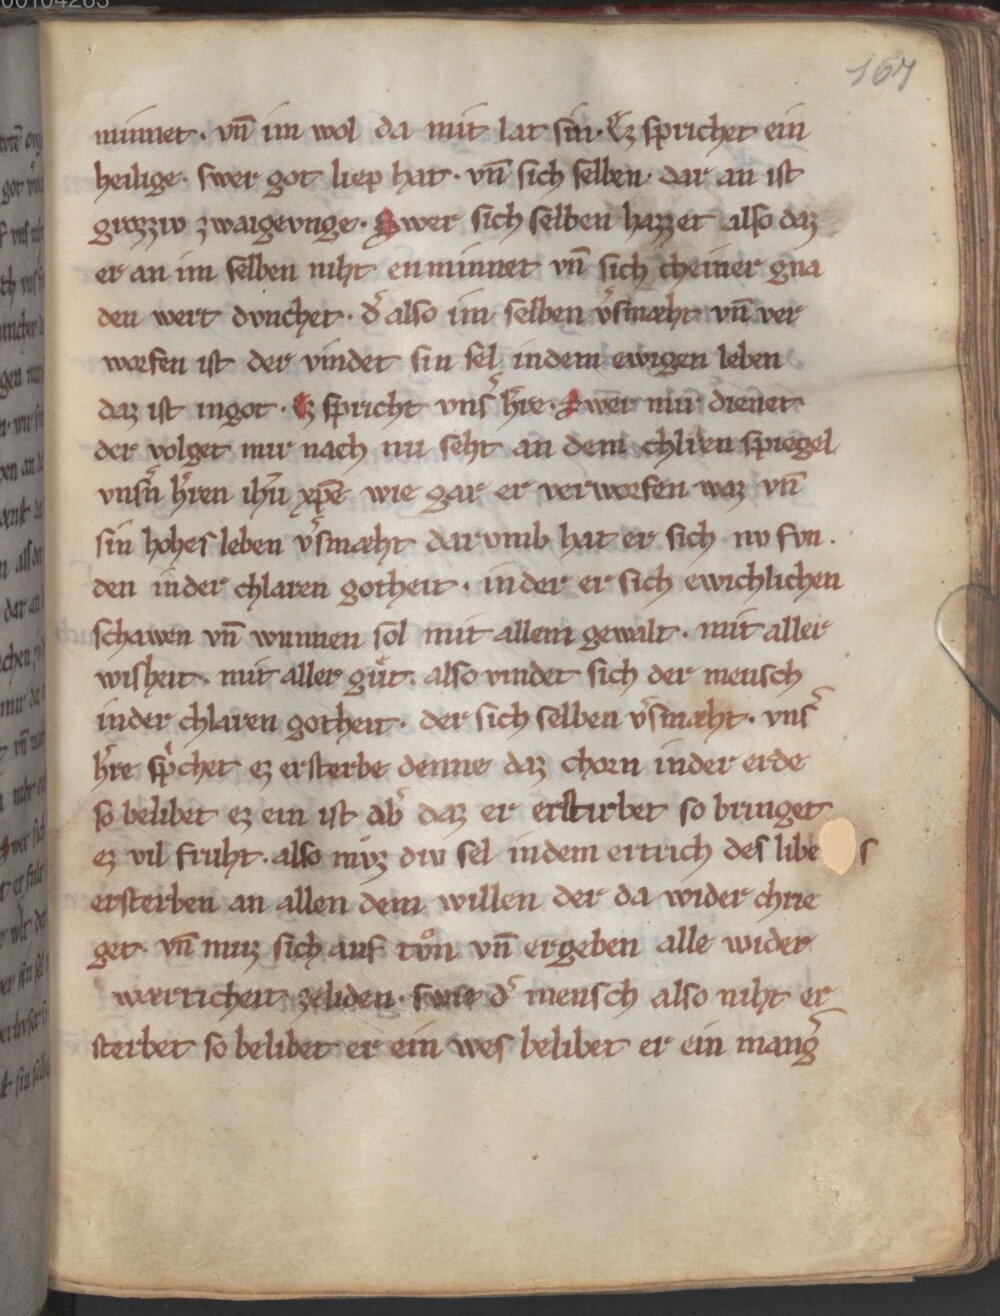 167
minnet · vn̄ im wol da mit lat sin · Ez sprichet ein
heilige · swer got liep hat · vn̄ sich selben · dar an ist
grozziv zwaigevnge · Swer sich selben hazzet also daz
er an im selben niht enminnet vn̄ sich cheiner gna
den wert dvnchet · d͛ also im selben v͛smæht vn̄ ver
worfen ist der vindet sin sel indem ewigen leben
daz ist ingot · Ez spricht vns͛ h͛re · Swer mir dienet
der volget mir nach nu seht an dem chlaren spiegel
vns͛n h͛ren ih̄m xp̄e wie gar er verworfen waz vn̄
sin hohes leben v͛smæht darvmb hat er sich nv fvn ·
den inder chlaren gotheit · inder er sich ewichlichen
schawen vn̄ wunnen sol mit allem gewalt · mit aller
wisheit · mit aller guͤt · also vindet sich der mensch
inder chlaren gotheit · der sich selben v͛smæht · vns͛
h͛re spͥchet ez ersterbe denne daz chorn inder erde
so belibet ez ein ist ab͛ daz er erstirbet so bringet
ez vil fruht · also mv̊z div sel indem ertrich des libes
ersterben an allen dem willen der da wider chrie
get · vn̄ muz sich auf tv̊n vn̄ ergeben alle wider
wærticheit zeliden · swie d͛ mensch also niht er
sterbet so belibet er ein wes belibet er ein mang͛